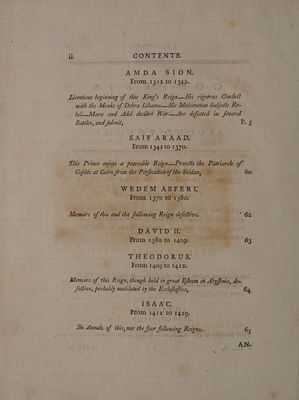 ii CONTENTS.
AMDA SION.
From 1312 to 1342.
Licentious beginning of this King's Reign—His rigorous Conduct
with the Monks of Debra Libanos—His Mahometan Subjects Re-
bel—Mara and Adel declare War—Are defeated in several
Battles, and submit, P. 5
SAIF ARAAD.
From 1342 to 1370.
This Prince enjoys a peaceable Reign—Protects the Patriarch of
Cophts at Cairo from the Persecution of the Soldan, 60
WEDEM ASFERI.
From 1370 to 1380.
Memoirs of this and the following Reign defective. 62
DAVID II.
From 1380 to 1409. 63
THEODORUS.
From 1409 to 1412.
Memoirs of this Reign, though held in great Esteem in Abyssinia, de-
fective, probably mutilated by the Ecclesiastics, 64
ISAAC.
From 1412 to 1429.
No Annals of this, nor the four following Reigns. 65
AN-